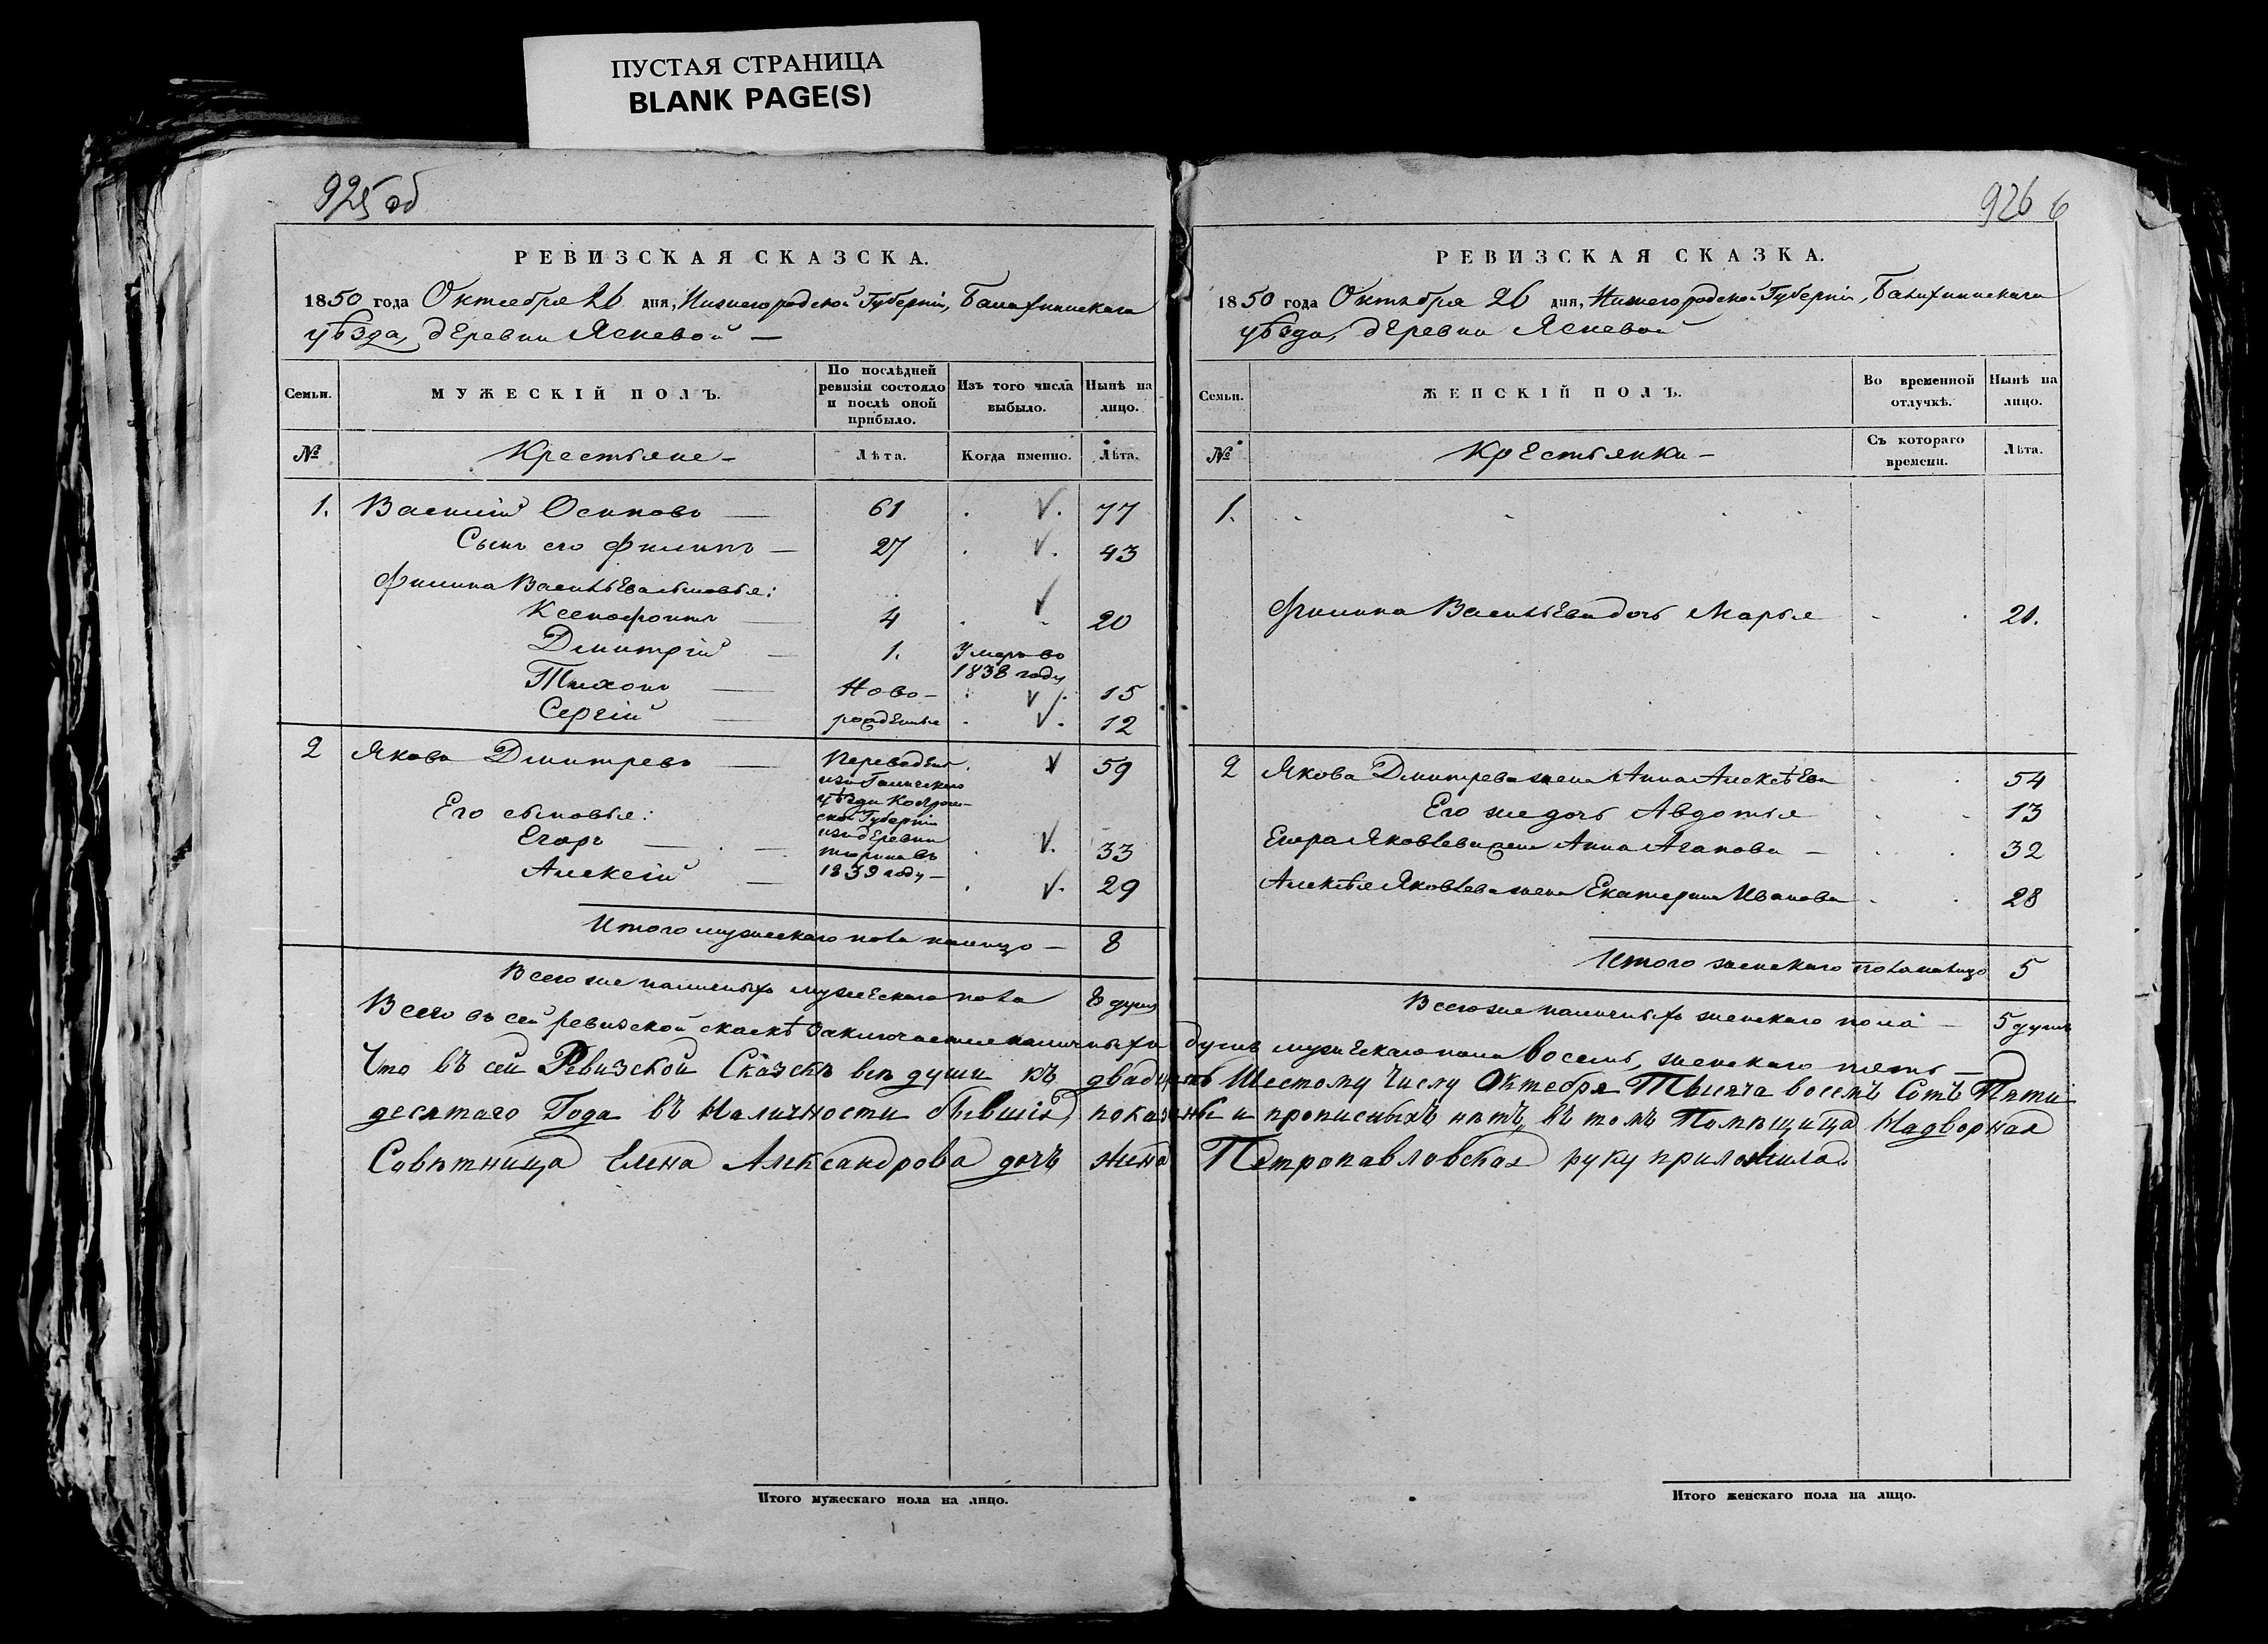 ПУСТАЯ СТРАНИЦА
BLANK PAGE(S)
925 об
РЕВИЗСКАЯ СКАЗСКА.
1850 года Октября 26 дня, Нижегородской Губерніи, Балахнинскаго
уѣзда, деревни Ясневой —
Семьи.
МУЖЕСКІЙ ПОЛЪ.
По послѣдней ревизіи состояло и послѣ оной прибыло.
Изъ того числа выбыло.
Нынѣ на лицо.
№
Крестьяне —
Лѣта.
Когда именно.
Лѣта.
1. Василій Осиповъ — 61 77
Сынъ его Филипъ — 27 43
Филипа Васильева сыновья:
Ксенофонтъ — 4 20
Дмитрій — 1. Умеръ въ 1838 году
Тихонъ — Ново- 15
Сергій — рожденные 12
2 Яковъ Дмитревъ — Переведены 59
изъ Галичскаго
уѣзда Костром-
ской Губерніи
изъ деревни
въ
1839 году —
Его сыновья:
Егоръ — 33
Алексій — 29
Итого мужескаго пола налицо — 8
Всего же наличныхъ мужескаго пола 8 душъ
926 6
РЕВИЗСКАЯ СКАЗКА.
1850 года Октября 26 дня, Нижегородской Губерніи, Балахнинскаго
уѣзда, деревни Ясневой
Семьи.
ЖЕНСКІЙ ПОЛЪ.
Во временной отлучкѣ.
Нынѣ на лицо.
№
Крестьянки —
Съ котораго времени.
Лѣта.
1.
Филипа Васильева дочь Марья 21.
2 Якова Дмитрева жена Анна Алексѣева 54
Его же дочь Авдотья 13
Егора Яковлева жена Анна Агапова — 32
Алексѣя Яковлева жена Екатерина Иванова 28
Итого женскаго пола налицо 5
Всего же наличныхъ женскаго пола — 5 душъ
Всего въ сей ревизской сказкѣ заключается наличныхъ душъ мужескаго пола восемь, женскаго пять —
Что въ сей Ревизской Сказскѣ всѣ души къ двадцать Шестому Числу Октебря Тысяча восемъ Сотъ Пяти
десятаго Года въ Наличности бывшія, показаны и прописныхъ нѣтъ, въ томъ Помѣщица Надворная
Совѣтница Елена Александрова дочъ жена Петропавловская руку приложила.
Итого мужескаго пола на лицо.
Итого женскаго пола на лицо.